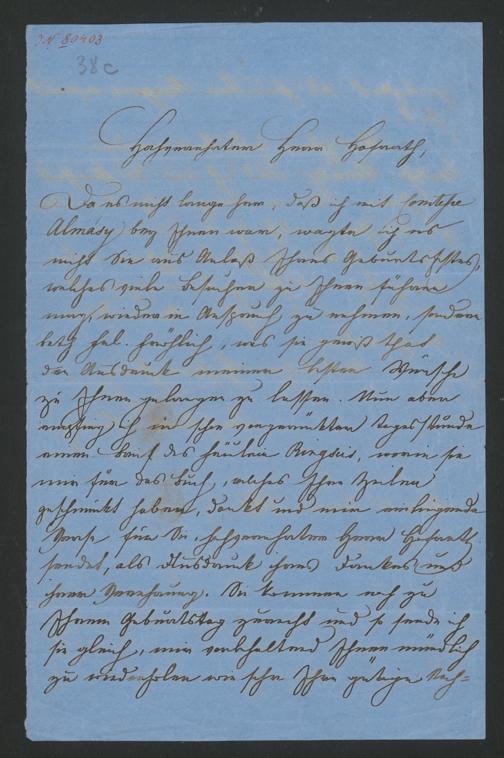 I.N. 80403
38c
Hochverehrter Herr Hofrath,
Da es nicht lange her, daß ich mit Comtesse
Almásy bey Ihnen war, wagte ich es
nicht Sie aus Anlaß Ihres Geburtsfestes,
welches viele Besucher zu Ihnen führen
mag, wieder in Anspruch zu nehmen, sondern
bat Frl. Fröhlich, was sie gewiß that
den Ausdruck meiner besten Wünsche
zu Ihnen gelangen zu lassen. Nun aber
empfing ich in schon vorgerückter Tagesstunde
einen Brief des Fräulein Ringseis, worin sie
mir für das Buch, welches Ihre Zeilen
geschmückt haben, dankt und mir einliegende
Verse für Sie, hochverehrter Herr Hofrath
sendet, als Ausdruck ihres Dankes und
ihrer Verehrung. Sie kommen noch zu
Ihrem Geburtstag zurecht und so sende ich
sie gleich, mir vorbehaltend Ihnen mündlich
zu wiederholen wie sehr Ihre gütige